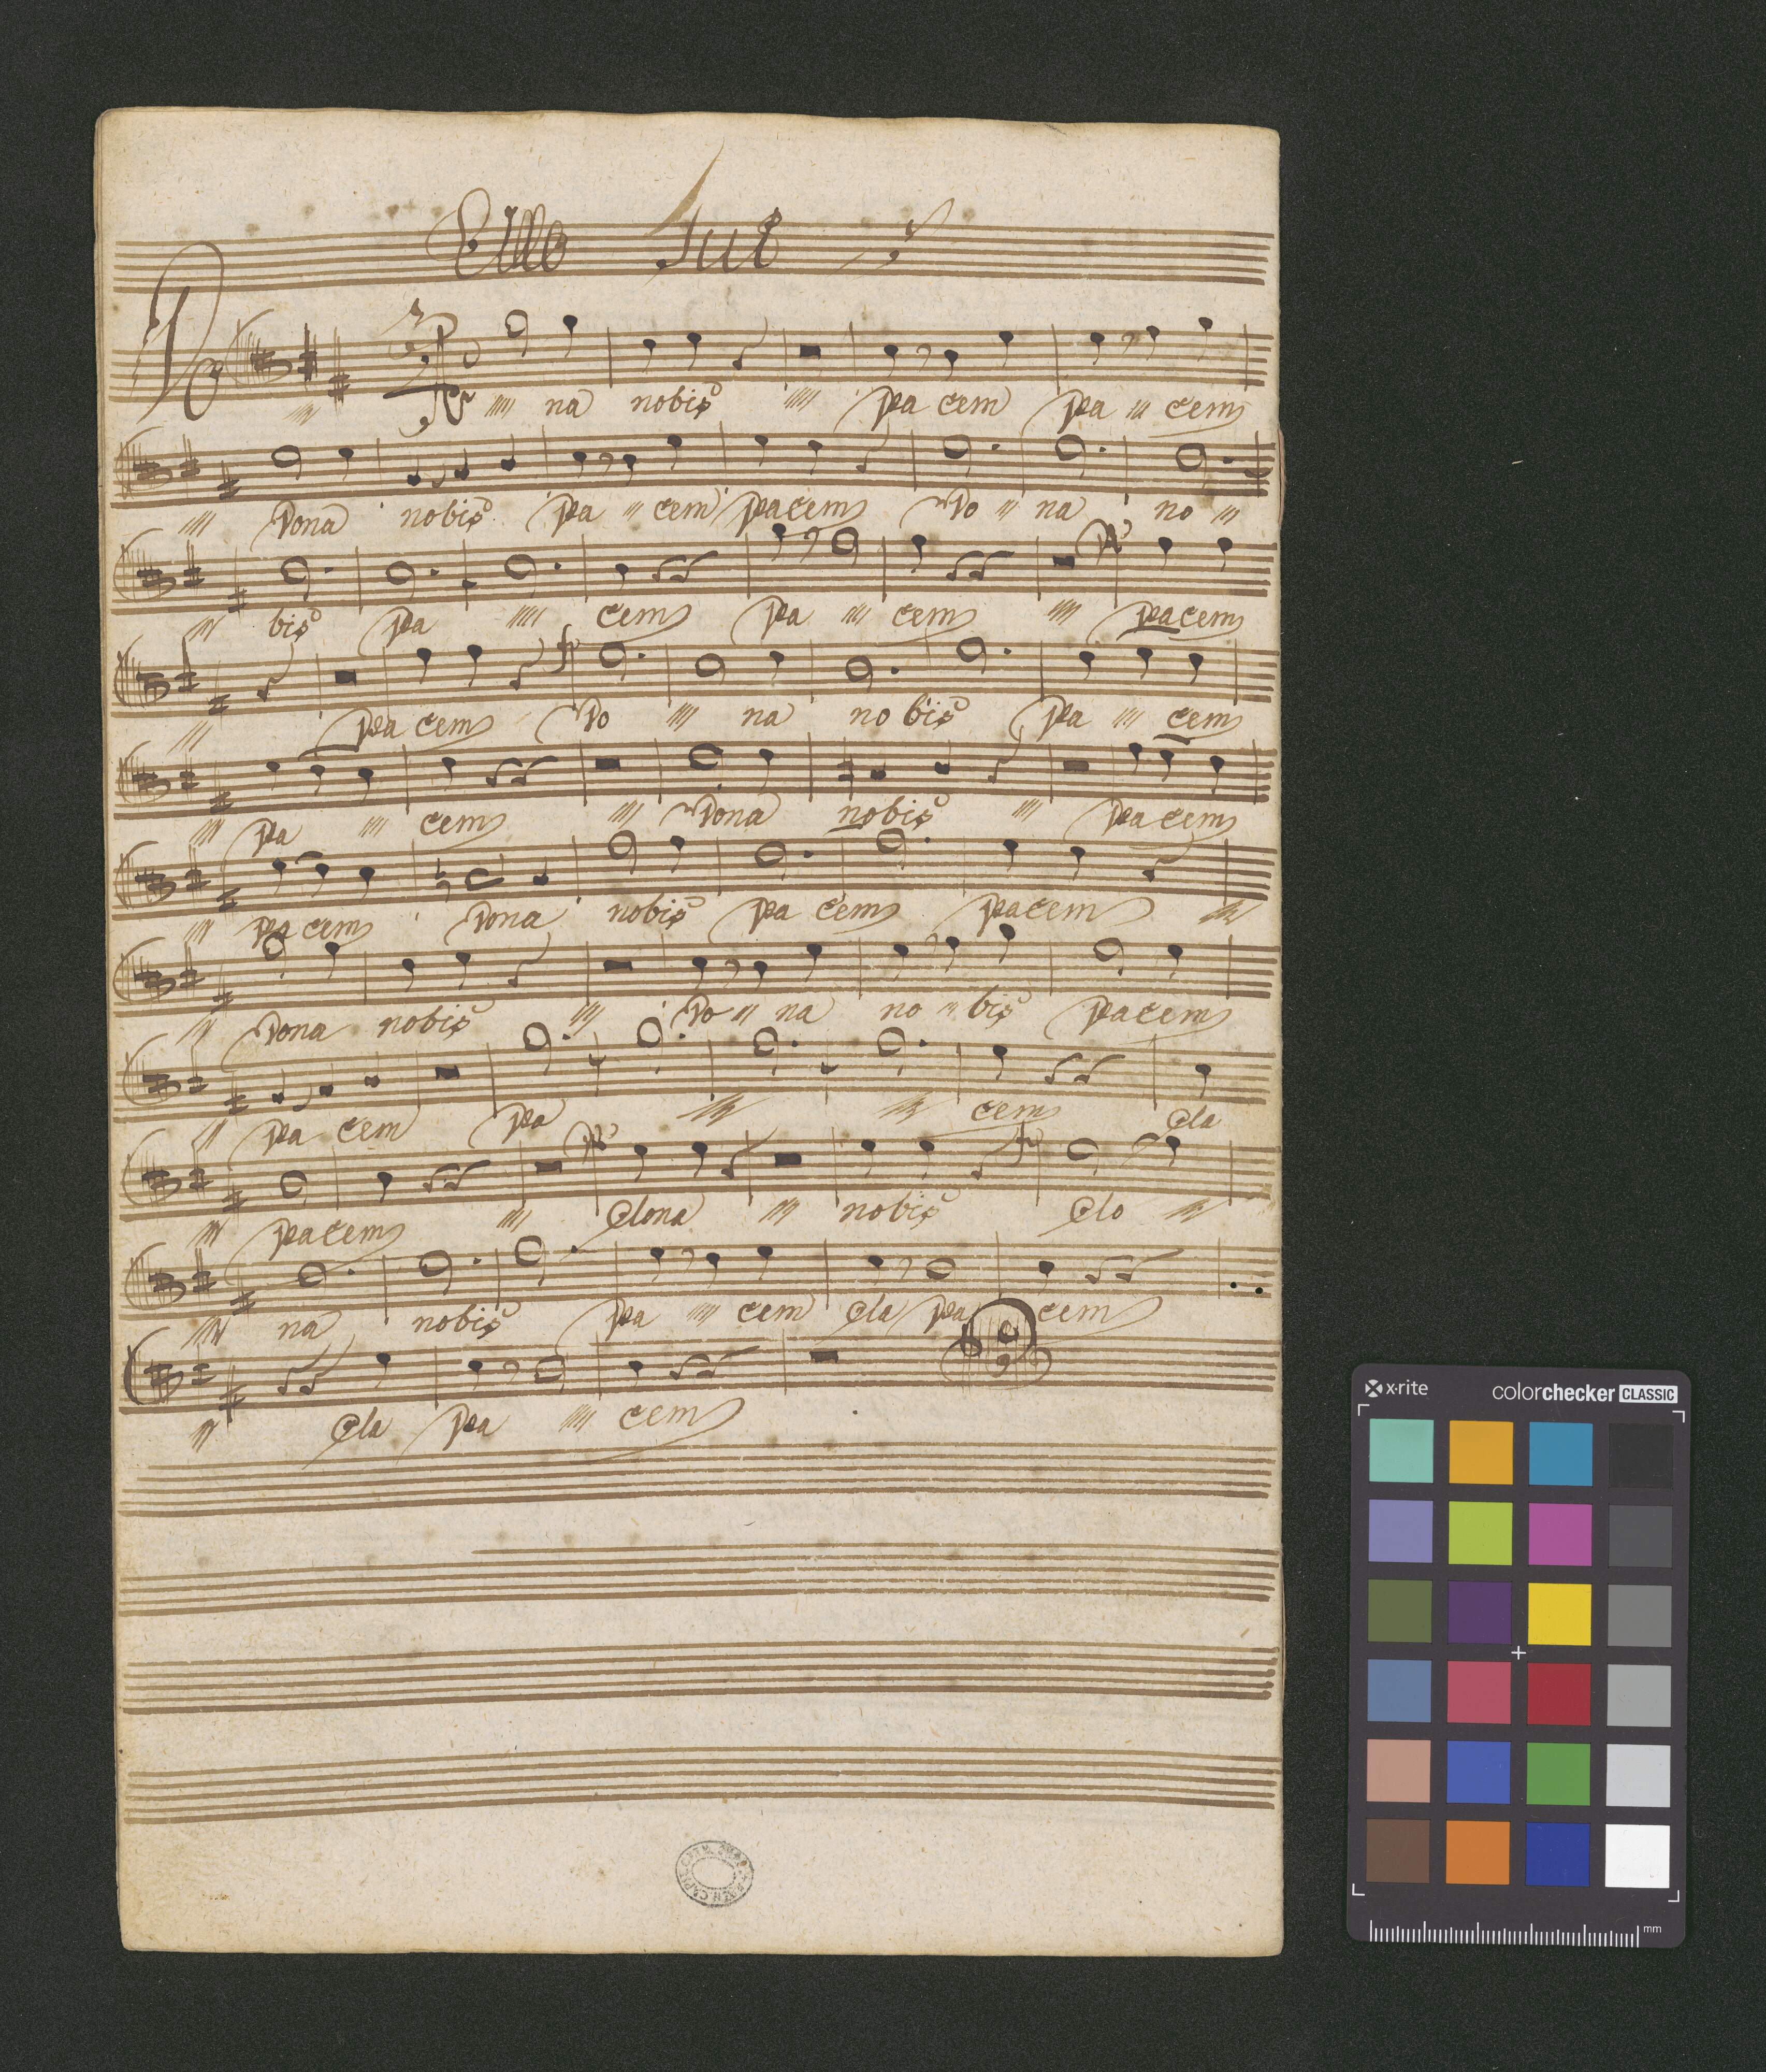 Do na nobis pa cem pa cem
Dona nobis pa cem pacem Do na no
bis pa cem pa cem pacem
pa cem Do na no bis pa cem
pa cem Dona nobis pa cem
pa cem Dona nobis pa cem pacem
Dona nobis Do na no bis pacem
pa cem pa cem
pacem nobis
na nobis pa cem pa cem
pa cem
x·rite colorchecker CLASSIC
mm